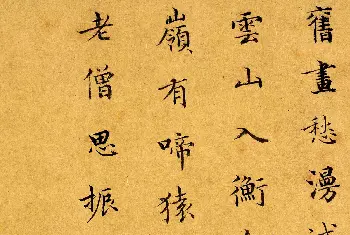 舊畫愁漫
雲山入衡
嶺有啼猿
老僧思振